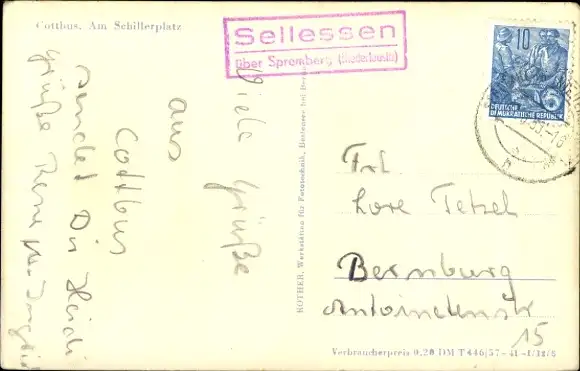 Cottbus, Am Schillerplatz
Sellessen
über Spremberg (Niederlausitz)
10
DEUTSCHE
DEMOKRATISCHE REPUBLIK
Viele Grüße
aus
Cottbus
sendet Dir Heidi
Grüße
ROTHER, Werkstätten für Fototechnik, Bestensee bei
Frl
Lore Tetzel
Bernburg
Antoinettenstr
15
Verbraucherpreis 0,20 DM T 446/57